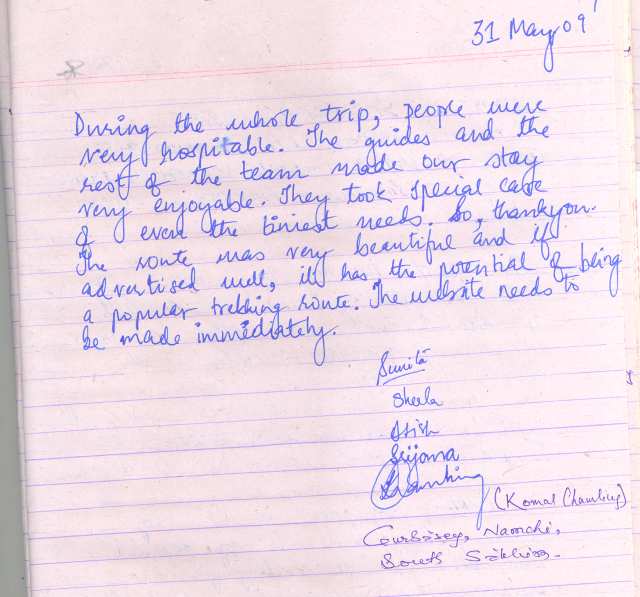 31 May 09'
During the whole trip, people were
very hospitable. The guides and the
rest of the team made our stay
very enjoyable. They took special care
of even the tiniest needs. So, thankyou.
The route was very beautiful and if
advertised well, it has the potential of being
a popular trekking route. The website needs to
be made immediately.
Sunita
Sheela
Atish
Srijana
(Komal Chamling)
Namchi,
South Sikkim.